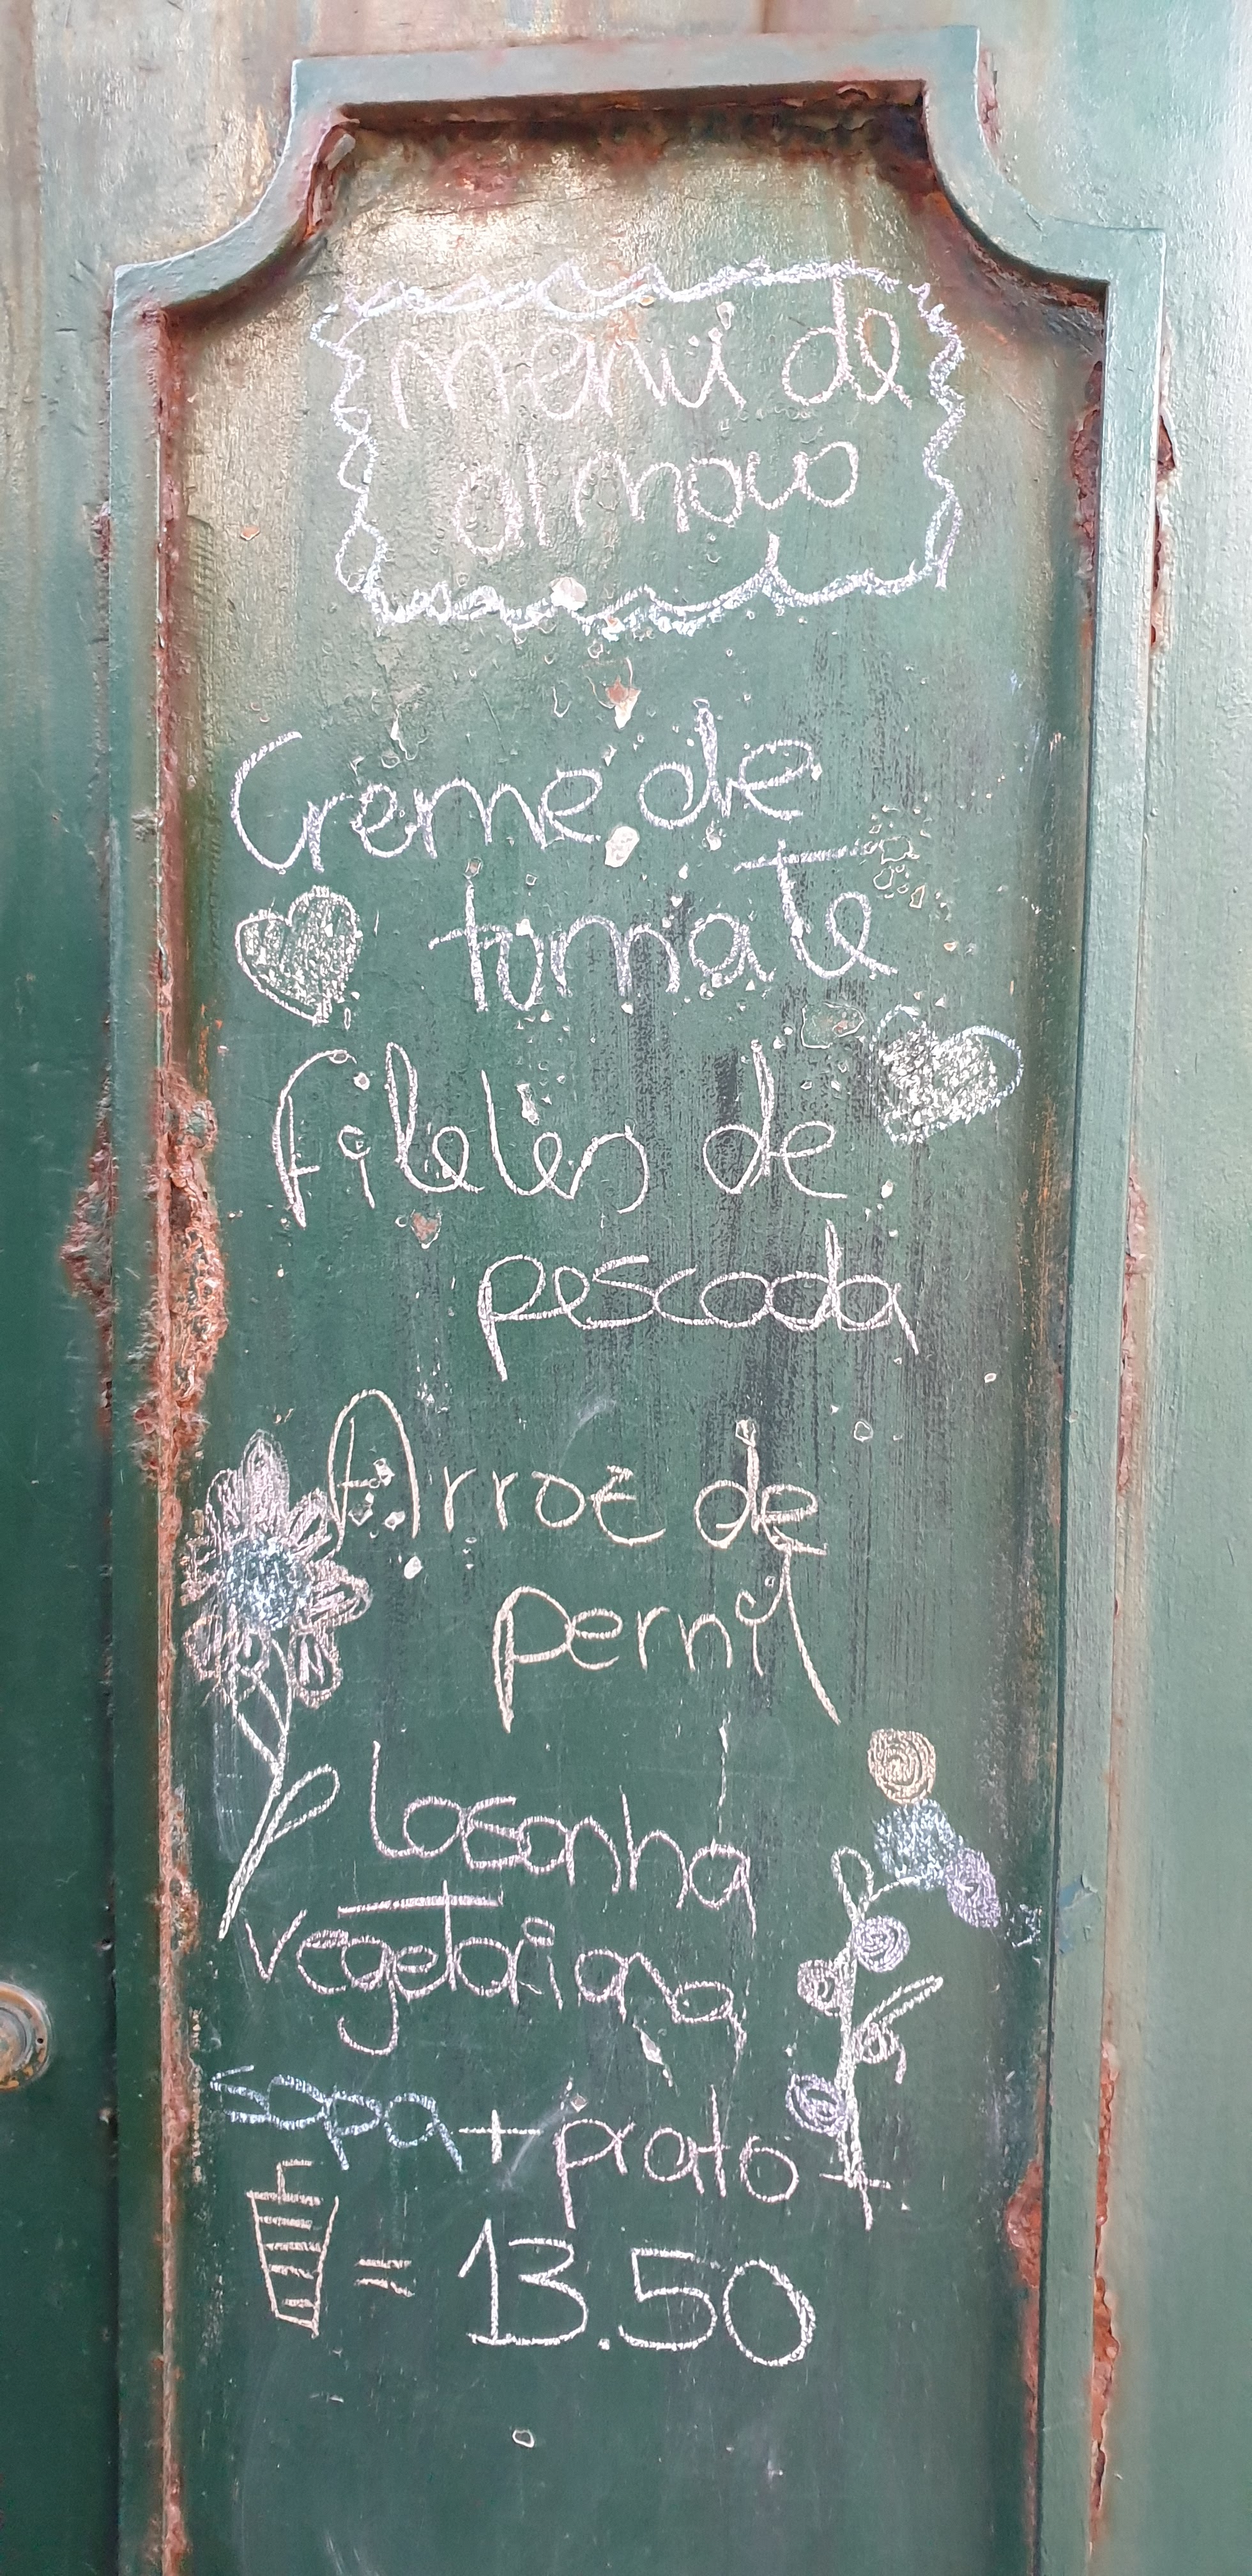 menú de
almoço
Creme de
tomate
filetes de
pescada
Arroz de
pernil
Lasanha
vegetariana
sopa + prato +
= 13.50